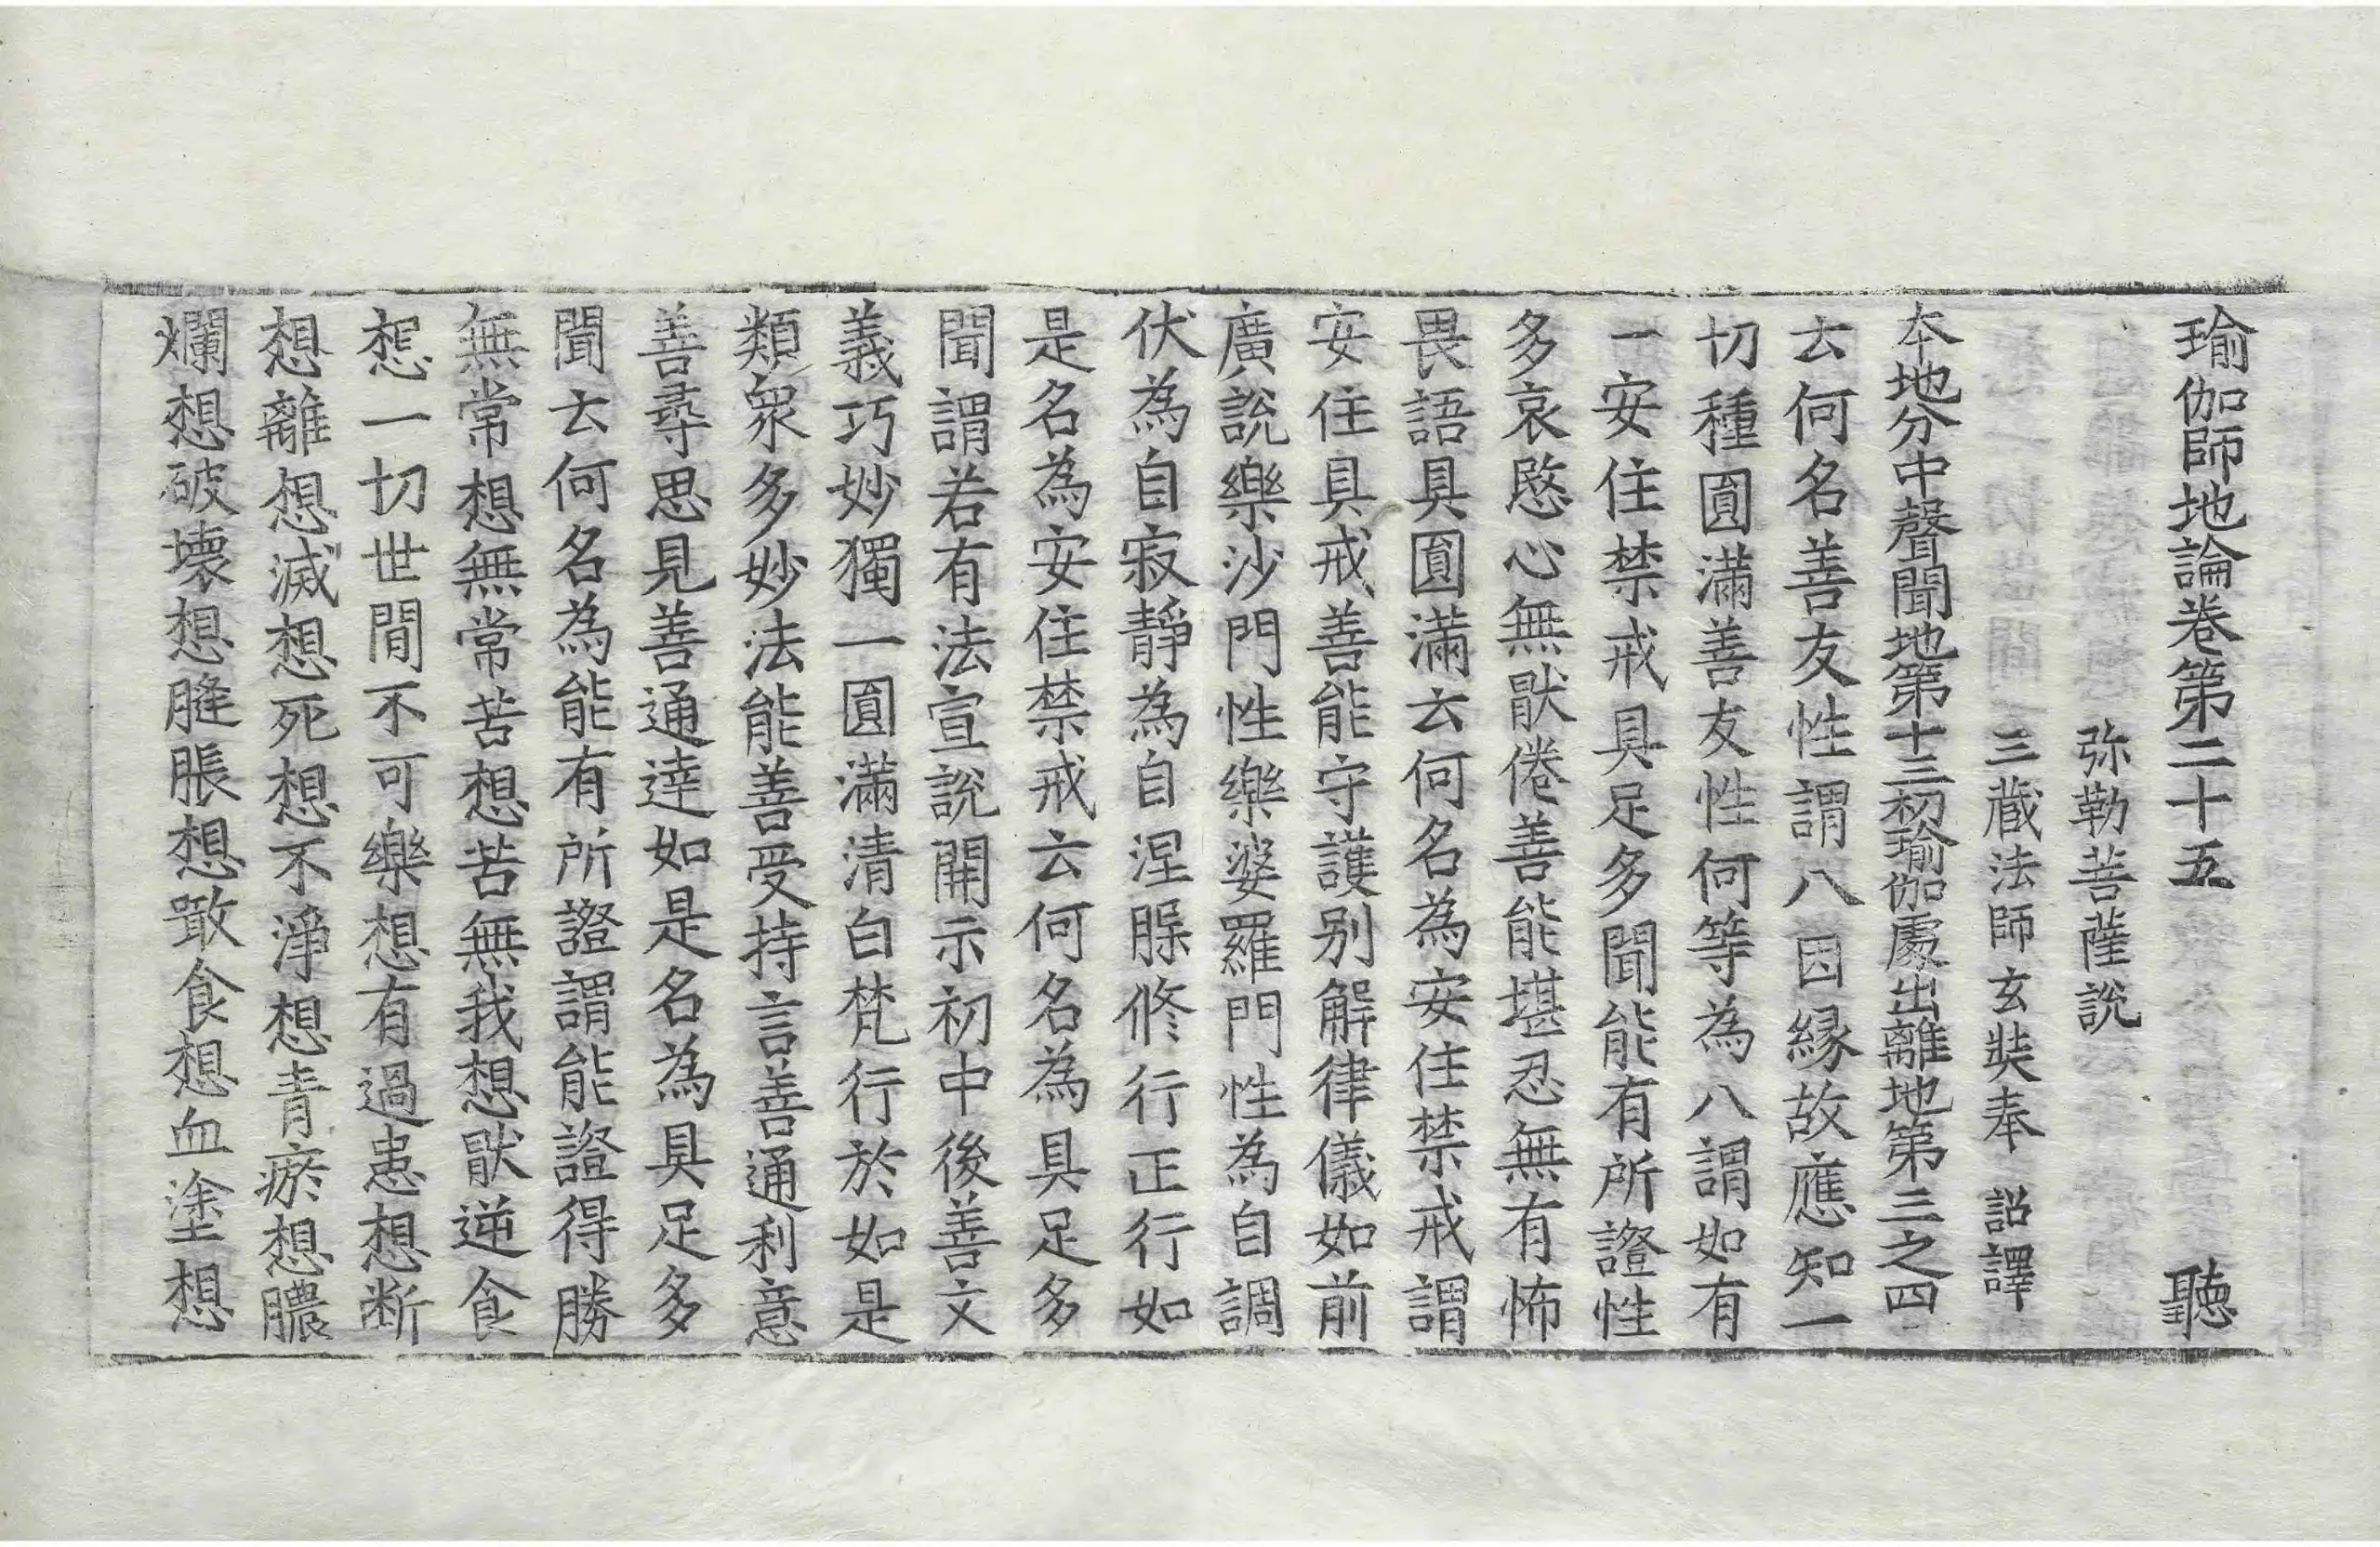 瑜伽師地論卷第二十五 聽
弥勒菩薩說
三藏法師玄奘奉 詔譯
本地分中聲聞地第十三初瑜伽處出離地第三之四
云何名善友性謂八因縁故應知一
切種圓滿善友性何等為八謂如有
一安住禁戒具足多聞能有所證性
多哀愍心無猒倦善能堪忍無有怖
畏語具圓滿云何名為安住禁戒謂
安住具戒善能守護别解律儀如前
廣說樂沙門性樂婆羅門性為自調
伏為自寂靜為自涅槃修行正行如
是名為安住禁戒云何名為具足多
聞謂若有法宣說開示初中後善文
義巧妙獨一圓滿清白梵行於如是
類衆多妙法能善受持言善通利意
善尋思見善通達如是名為具足多
聞云何名為能有所證謂能證得勝
無常想無常苦想苦無我想猒逆食
想一切世間不可樂想有過患想断
想離想滅想死想不淨想青瘀想膿
爛想破壞想膖脹想噉食想血塗想